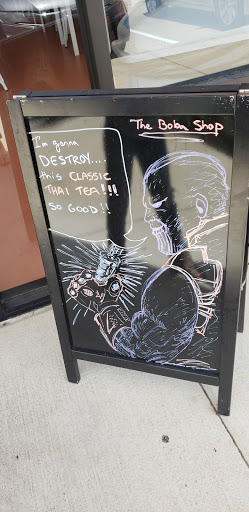 The Boba Shop
I'm gonna
DESTROY....
this CLASSIC
THAI TEA!!!
SO GOOD!!